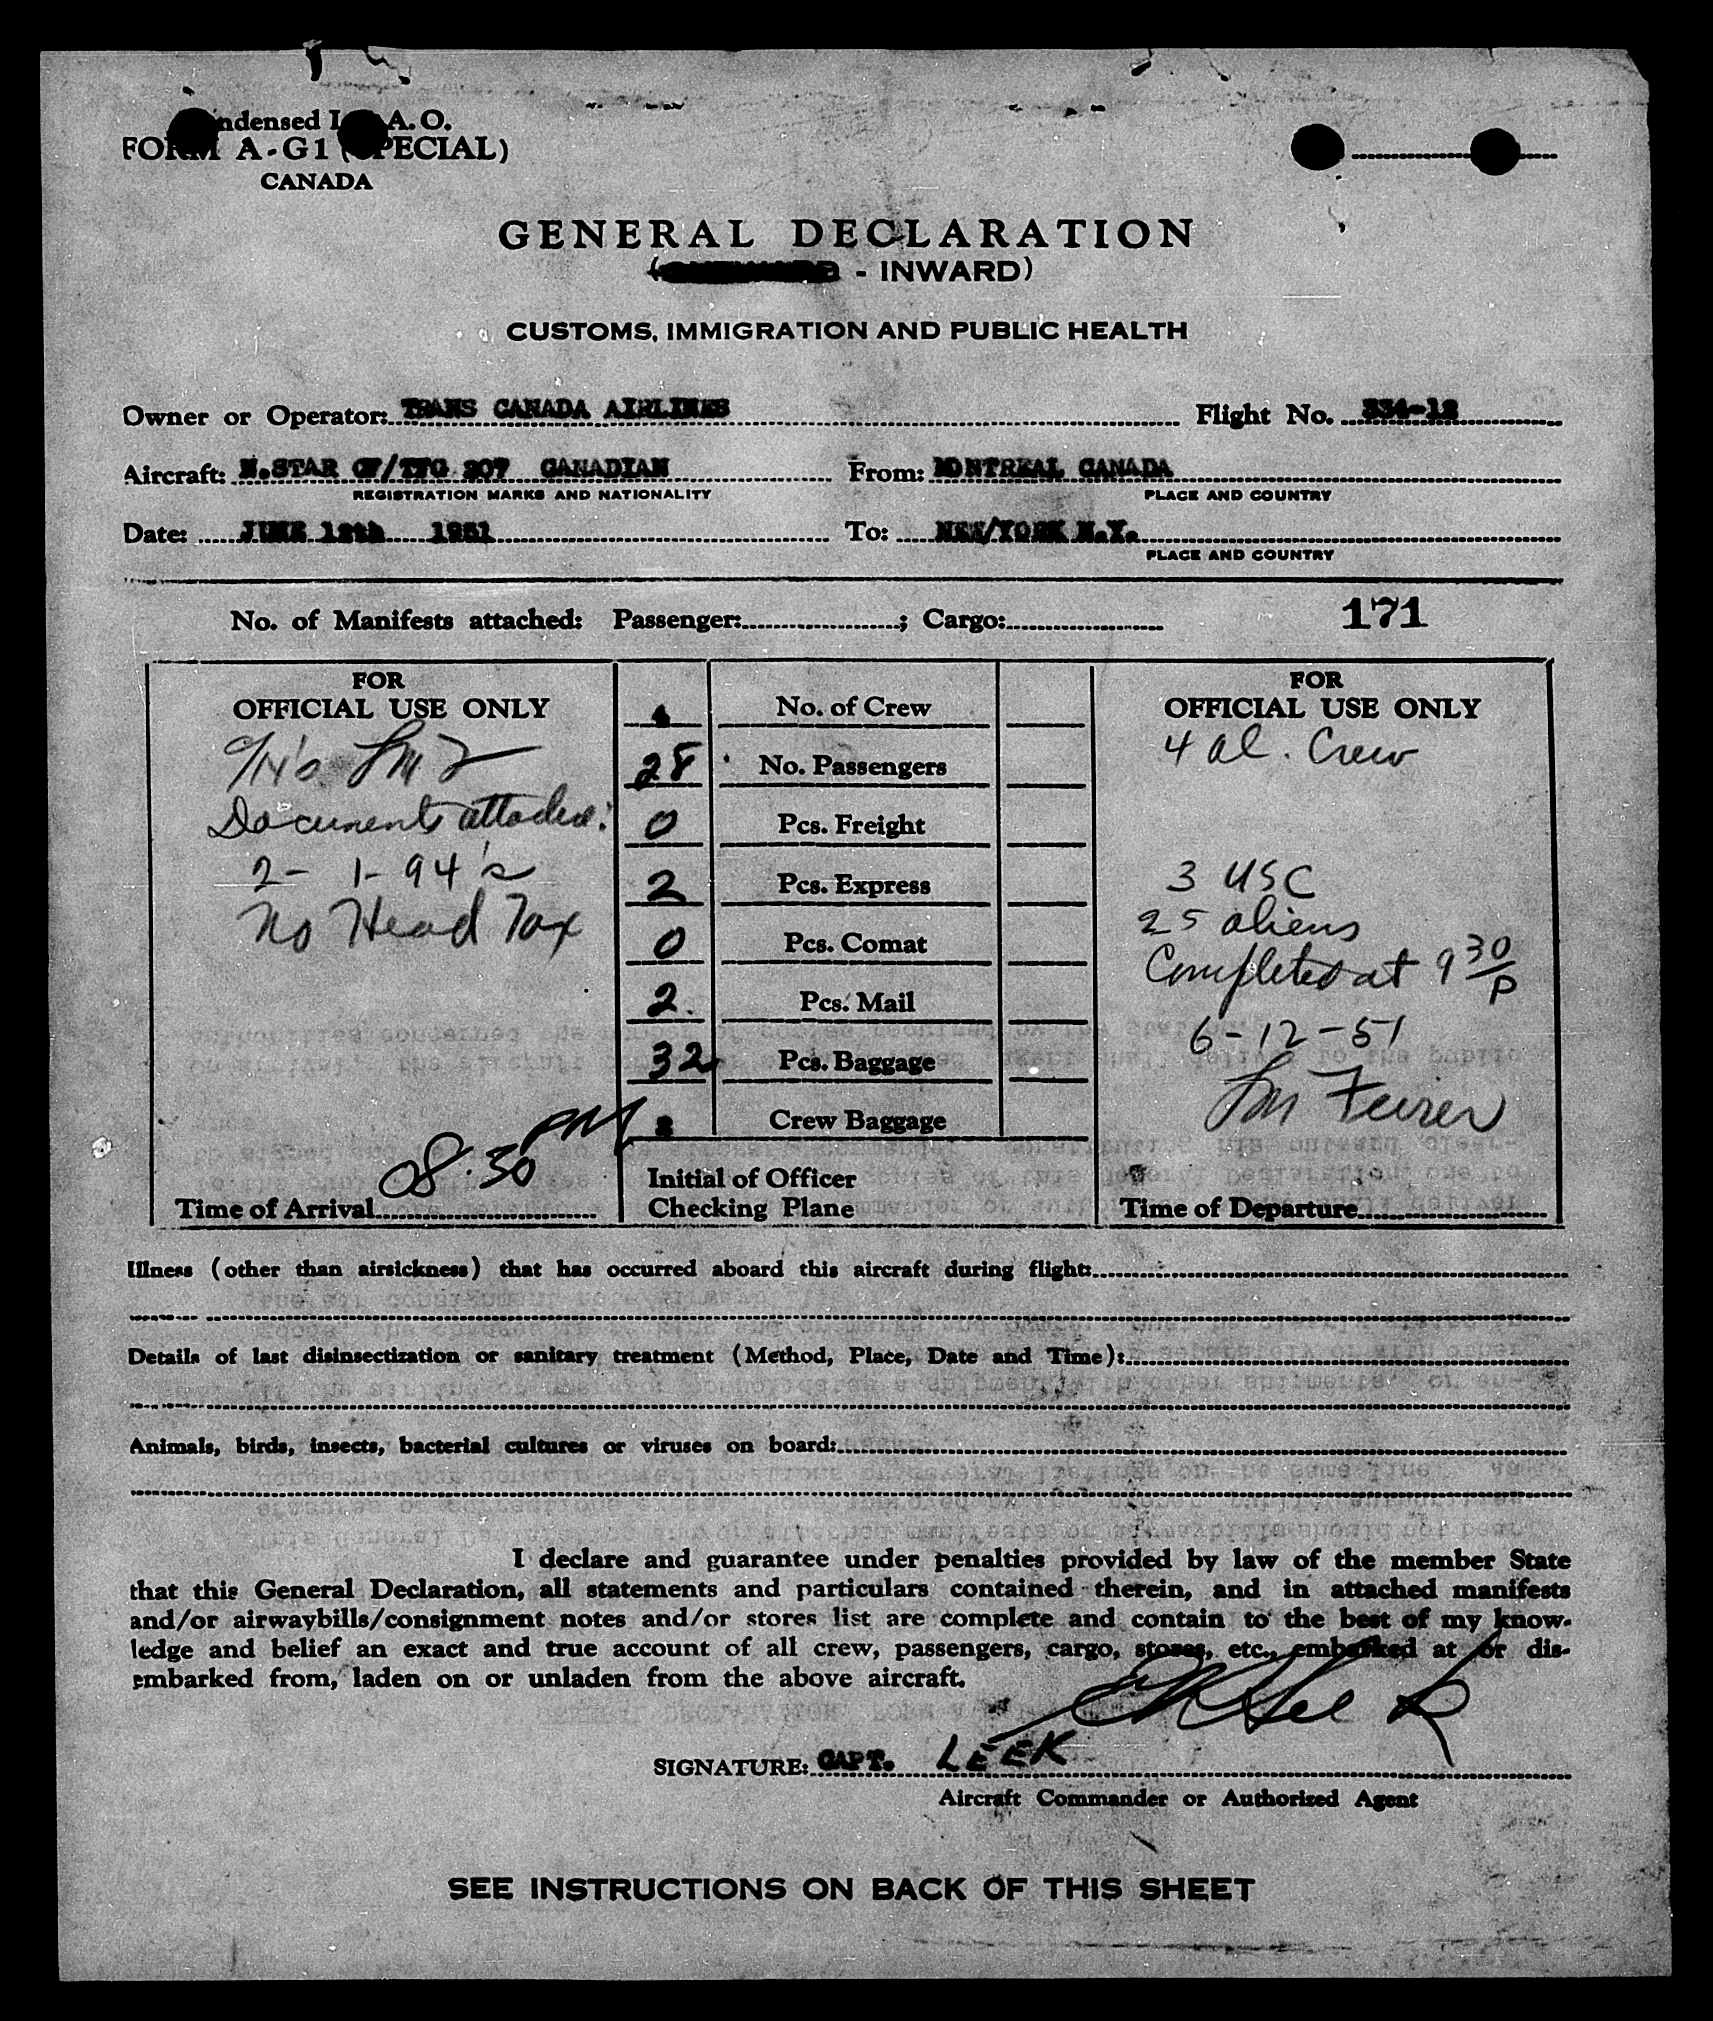 ndensed I A. O.
FORM A-G1 (SPECIAL)
CANADA
GENERAL DECLARATION
( - INWARD)
CUSTOMS, IMMIGRATION AND PUBLIC HEALTH
Owner or Operator: TRANS CANADA AIRLINES Flight No. 334-12
Aircraft: N.STAR CF/TFG 207 CANADIAN From: MONTREAL CANADA
REGISTRATION MARKS AND NATIONALITY PLACE AND COUNTRY
Date: JUNE 12th 1951 To: NEW/YORK N.Y.
PLACE AND COUNTRY
No. of Manifests attached: Passenger: ; Cargo: 171
FOR OFFICIAL USE ONLY
Documents attached:
2- 1-94's
No Head Tax
Time of Arrival 08:30 PM
4 No. of Crew
28 No. Passengers
0 Pcs. Freight
2 Pcs. Express
0 Pcs. Comat
2. Pcs. Mail
32 Pcs. Baggage
Crew Baggage
Initial of Officer
Checking Plane
FOR OFFICIAL USE ONLY
4 al. Crew
3 USC
25 aliens
Completed at 9 30/P
6-12-51
Time of Departure
Illness (other than airsickness) that has occurred aboard this aircraft during flight:
Details of last disinsectization or sanitary treatment (Method, Place, Date and Time):
Animals, birds, insects, bacterial cultures or viruses on board:
I declare and guarantee under penalties provided by law of the member State
that this General Declaration, all statements and particulars contained therein, and in attached manifests
and/or airwaybills/consignment notes and/or stores list are complete and contain to the best of my know-
ledge and belief an exact and true account of all crew, passengers, cargo, stores, etc., embarked at or dis-
embarked from, laden on or unladen from the above aircraft.
SIGNATURE: CAPT. LEEK
Aircraft Commander or Authorized Agent
SEE INSTRUCTIONS ON BACK OF THIS SHEET